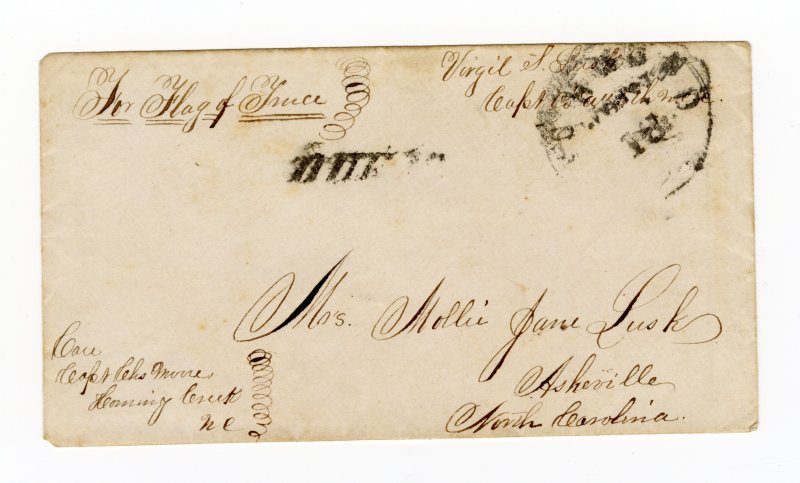 For Flag of Truce
Virgil S. Lusk
Capt
DUE
Mrs. Mollie Jane Lusk
Asheville
North Carolina.
Care
Capt Chs Moore
Homing Creek
NC